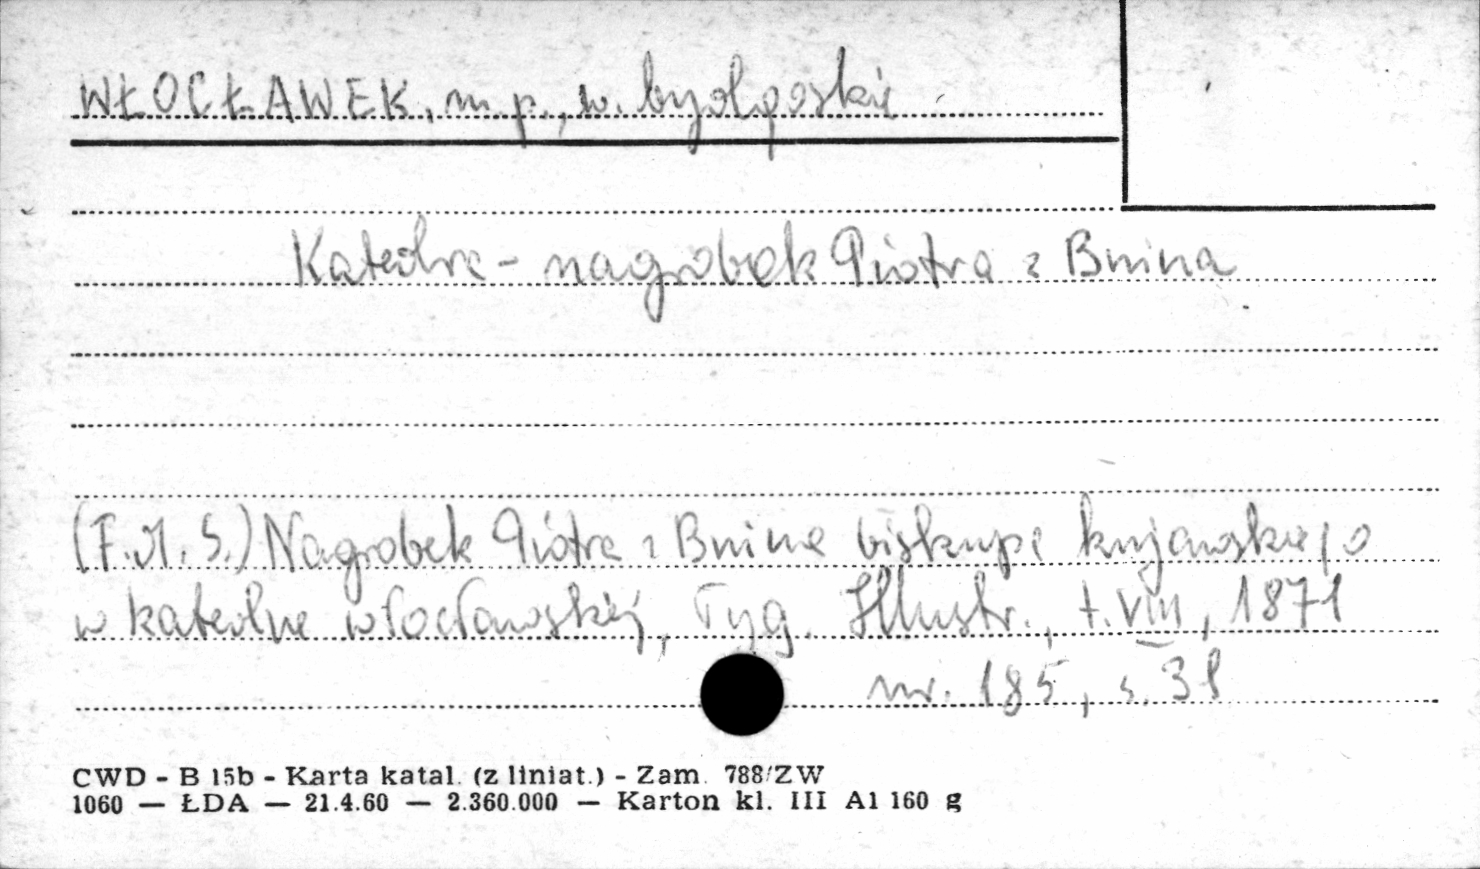 WŁOCŁAWEK, m.p., w. bydgoskie
Katedra - nagrobek Piotra z Bnina
(F.M.S.) Nagrobek Piotra z Bnina biskupa kujawskiego
w katedrze włocławskiéj, Tyg. Illustr., t. VIII, 1871
nr. 185, s. 38
CWD - B 15b - Karta katal. (z liniat.) - Zam. 788/ZW
1060 — ŁDA — 21.4.60 — 2.360.000 — Karton kl. III A1 160 g